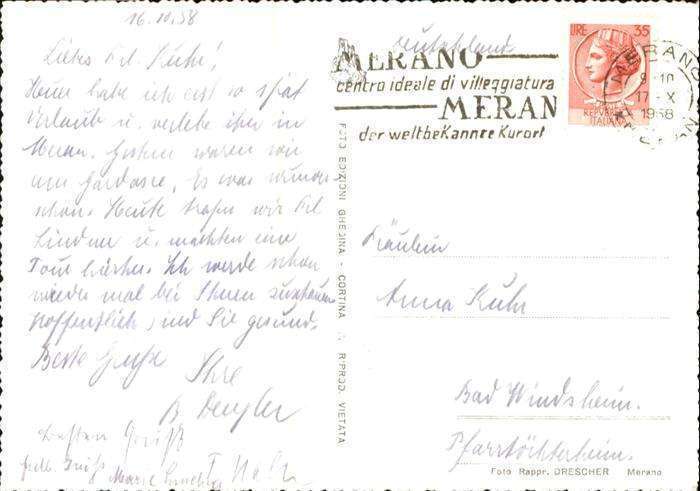 16.10.58
Liebes Frl. Kuhr!
Heuer habe ich erst so spät
Urlaub u. verlebe ihn in
Meran. Gestern waren wir
am Gardasee. Es war wunder-
schön. Heute trafen wir Frl.
Lindner u. machten eine
Tour hierher. Ich werde schon
wieder mal bei Ihnen zuschauen
hoffentlich sind Sie gesund.
Beste Grüße
Ihre
B.
Besten Gruß
Marie
Deutschland
MERANO
centro ideale di villeggiatura
MERAN
der weltbekannte Kurort
LIRE 35
REPUBBLICA
ITALIANA
MERANO
9-10
17-X
1958
FOTO EDIZIONI GHEDINA - CORTINA - RIPROD. VIETATA
Fräulein
Anna Kuhr
Bad Windsheim.
Pfarrtöchterheim.
Foto Rappr. DRESCHER Merano